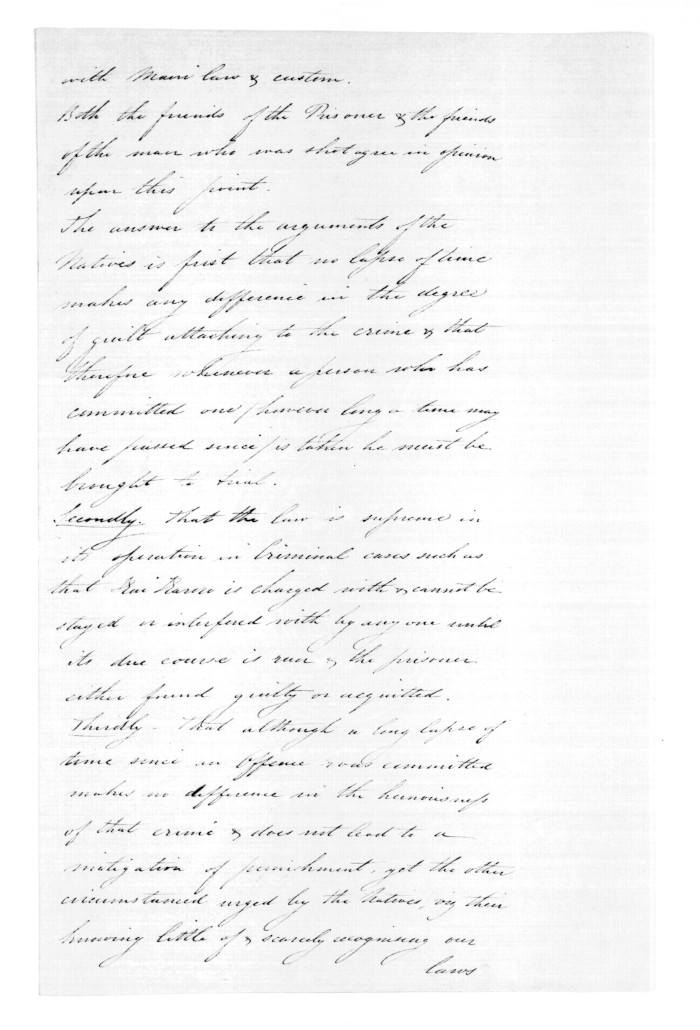 with Maori law & custom.
Both the friends of the Prisoner & the friends
of the man who was shot agree in opinion
upon this point.
The answer to the arguments of the
Natives is first that no lapse of time
makes any difference in the degree
of guilt attaching to the crime & that
therefore whenever a person who has
committed one (however long a time may
have passed since) is taken he must be
brought to trial.
Secondly. That the law is supreme in
its operation in Criminal cases such as
that is charged with & cannot be
stayed or interfered with by any one until
its due course is run & the prisoner
either found guilty or acquitted.
Thirdly - That although a long lapse of
time since an Offence was committed
makes no difference in the heinousness
of that crime & does not lead to a
mitigation of punishment, yet the other
circumstances urged by the Natives, viz their
knowing little of & scarcely recognising our
laws